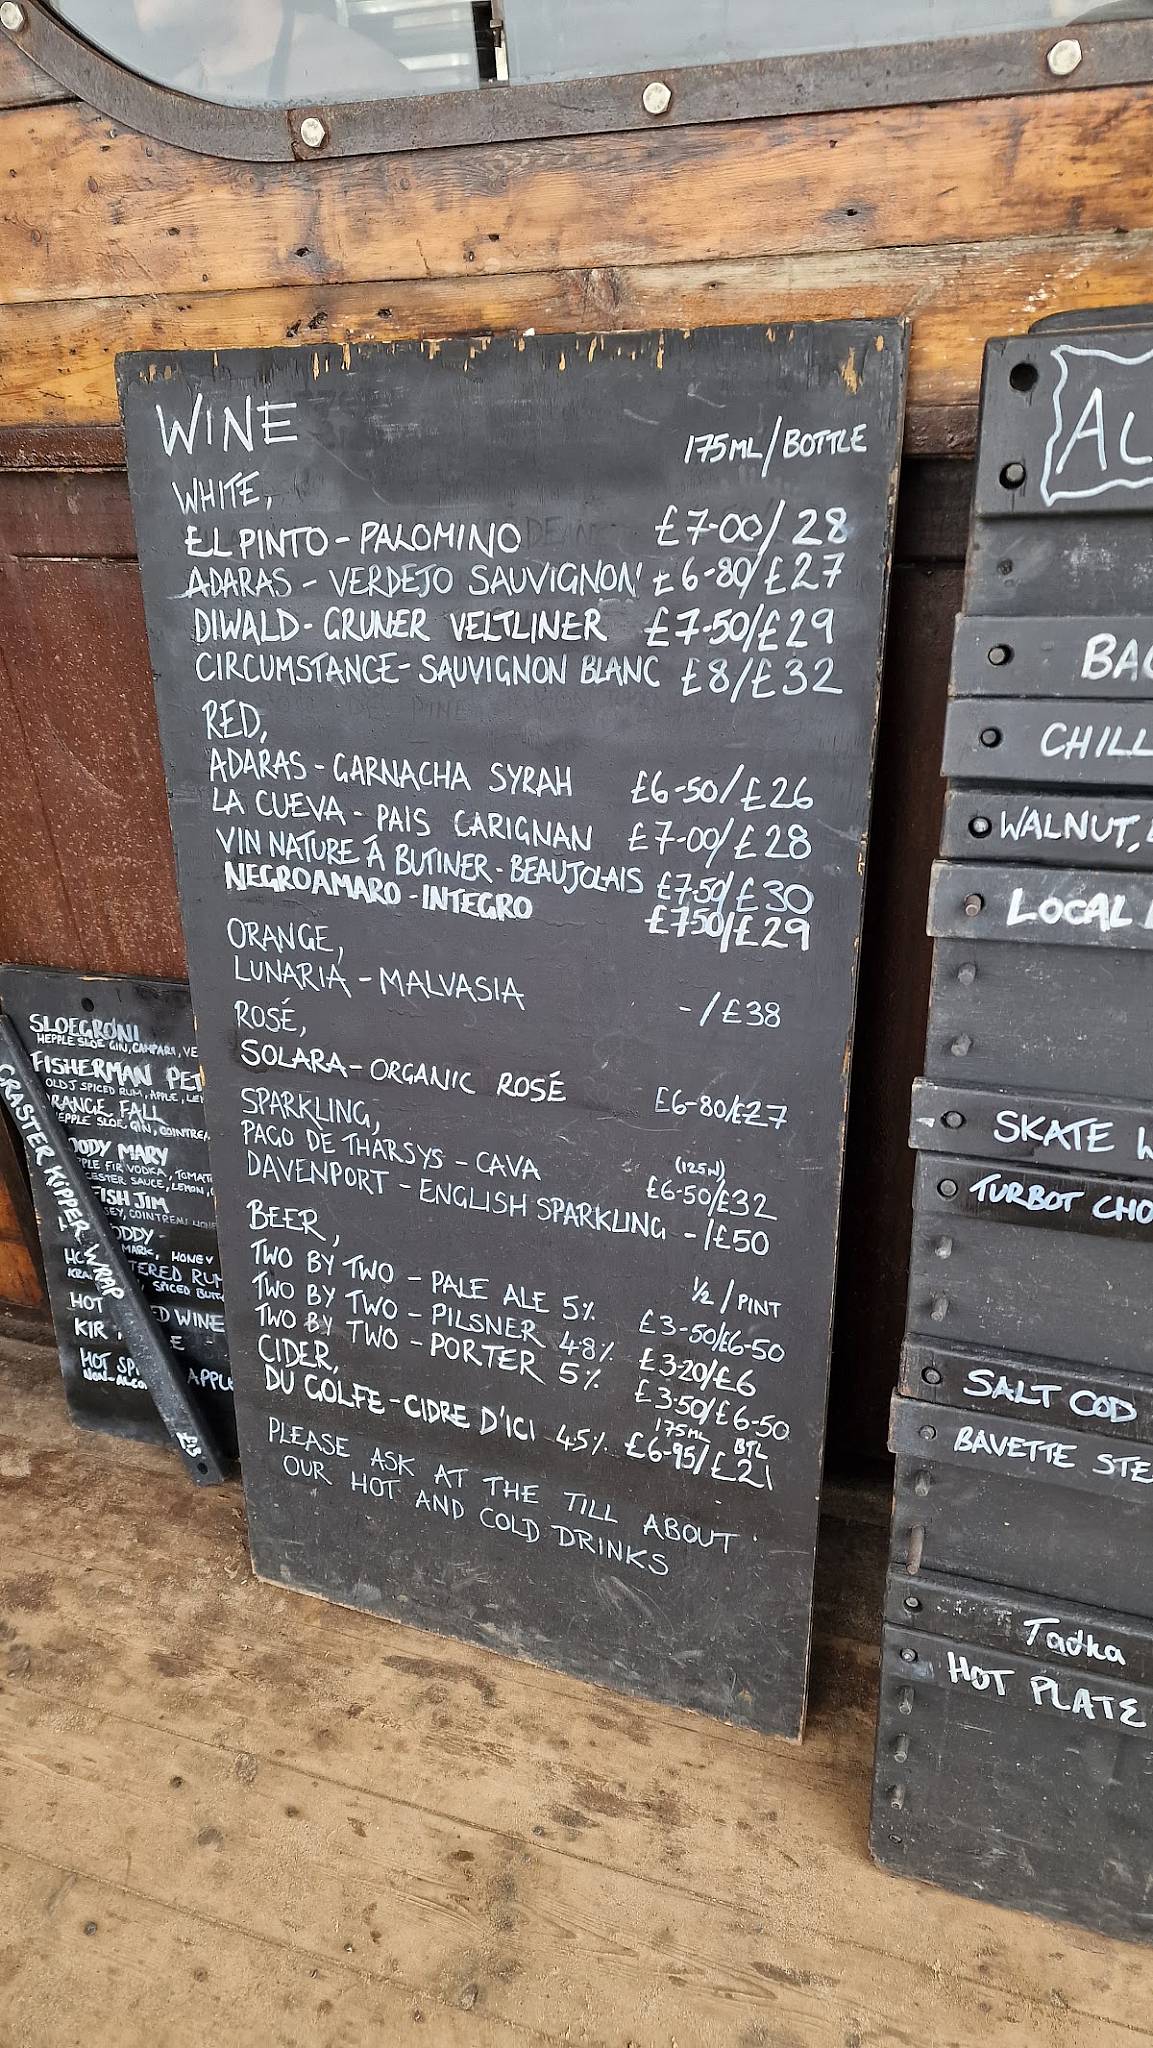 WINE
175ML/BOTTLE
WHITE,
EL PINTO - PALOMINO £7-00/28
ADARAS - VERDEJO SAUVIGNON £6-80/£27
DIWALD - GRUNER VELTLINER £7-50/£29
CIRCUMSTANCE - SAUVIGNON BLANC £8/£32
RED,
ADARAS - GARNACHA SYRAH £6-50/£26
LA CUEVA - PAIS CARIGNAN £7-00/£28
VIN NATURE Á BUTINER - BEAUJOLAIS £7.50/£30
NEGROAMARO - INTEGRO £7.50/£29
ORANGE,
LUNARIA - MALVASIA -/£38
ROSÉ,
SOLARA - ORGANIC ROSÉ £6-80/£27
SPARKLING,
PAGO DE THARSYS - CAVA £6-50/£32
DAVENPORT - ENGLISH SPARKLING -/£50
BEER,
½/PINT
TWO BY TWO - PALE ALE 5% £3-50/£6-50
TWO BY TWO - PILSNER 4.8% £3-20/£6
TWO BY TWO - PORTER 5% £3-50/£6-50
CIDER,
175ML BTL
DU GOLFE - CIDRE D'ICI 4.5% £6-95/£21
PLEASE ASK AT THE TILL ABOUT
OUR HOT AND COLD DRINKS
SLOEGRONI
HEPPLE SLOE GIN, CAMPARI, VE
FISHERMAN PET
OLD J SPICED RUM, APPLE,
RANGE FALL
EPPLE SLOE GIN, COINTREA
OODY MARY
PLE FIR VODKA, TOMAT
CESTER SAUCE, LEMON,
FISH JIM
SEY, COINTREAU
ODDY -
MARK, HONEY
TERED RUM
SPICED BUTT
HOT
D WINE
KIR
E -
HOT SP
APPLE
NON-ALCO
CRASTER KIPPER WRAP
AL
BAC
CHILL
WALNUT,
LOCAL
SKATE W
TURBOT CHO
SALT COD
BAVETTE STE
Tadka
HOT PLATE